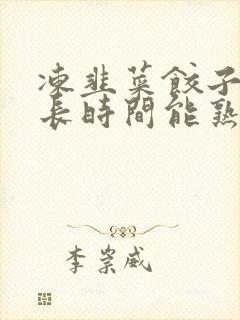 凍韭菜餃子
長時間能熟
李崇威